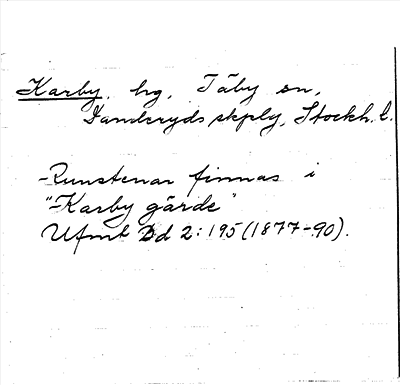 Karby. hg, Täby sn,
Danderyds skplg, Stockh. l.
Runstenar finnas i
"Karby gärde"
Ufmt Bd 2:195 (1877-90).